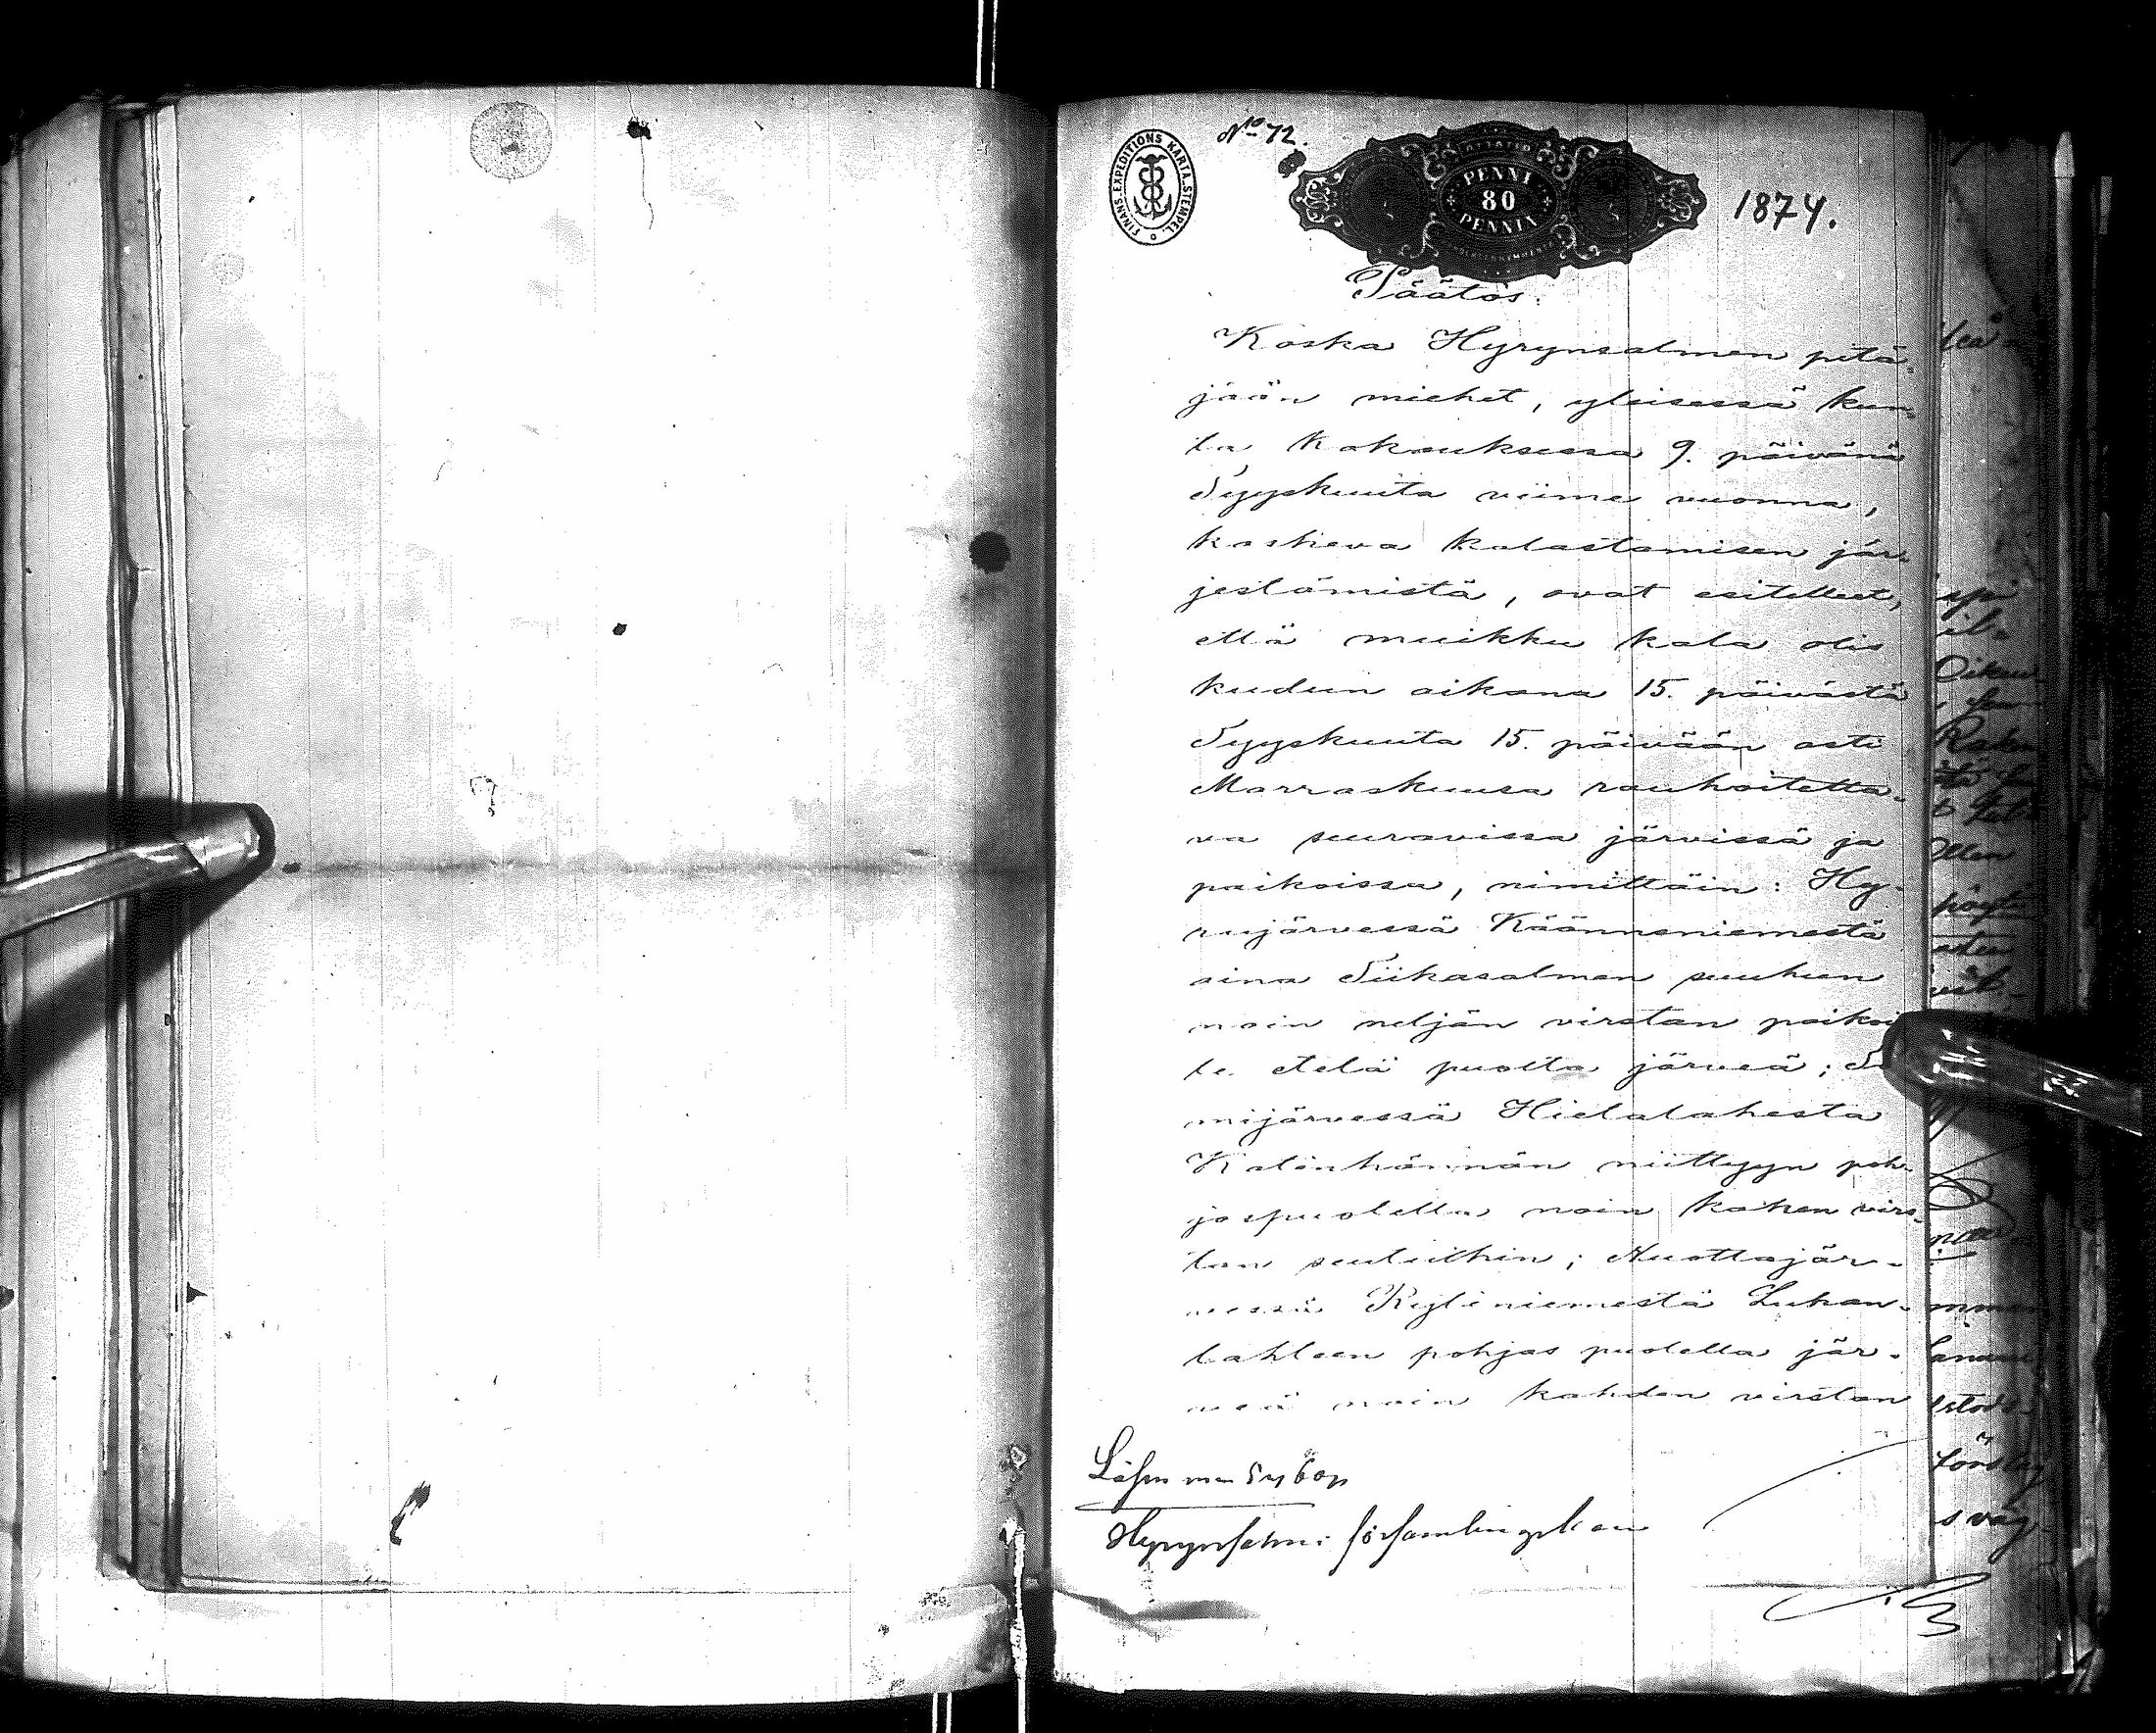 No 72.
FINANS.EXPEDITIONS KARTA.STEMPEL.
PENNI
80
PENNIÄ
1874.
Päätös:
Koska Hyrynsalmen pitä-
jään miehet, yleisessä kun-
ta kokouksessa 9. päivänä
Syyskuuta viime vuonna,
koskeva kalastamisen jär-
jestämistä, ovat esitelleet,
että muikku kala olis
kudun aikana 15. päivästä
Syyskuuta 15. päivään asti
Marraskuusa rauhoitetta-
va seuravissa järvissä ja
paikoissa, nimittäin: Hy-
rujärvessä Käänneniemestä
aina Siikasalmen suuhun
noin neljän virstan paikoi
le etelä puolta järveä;
mijärvessä Hietalahesta
niittyyn poh-
jaspuolella noin kahen virs-
tan seutuihin; Nuottajär-
vessä Kyliniemestä Luhan-
lahteen pohjas puolella jär-
veä noin kahden virstan
Hyrynsalmi församlingskan